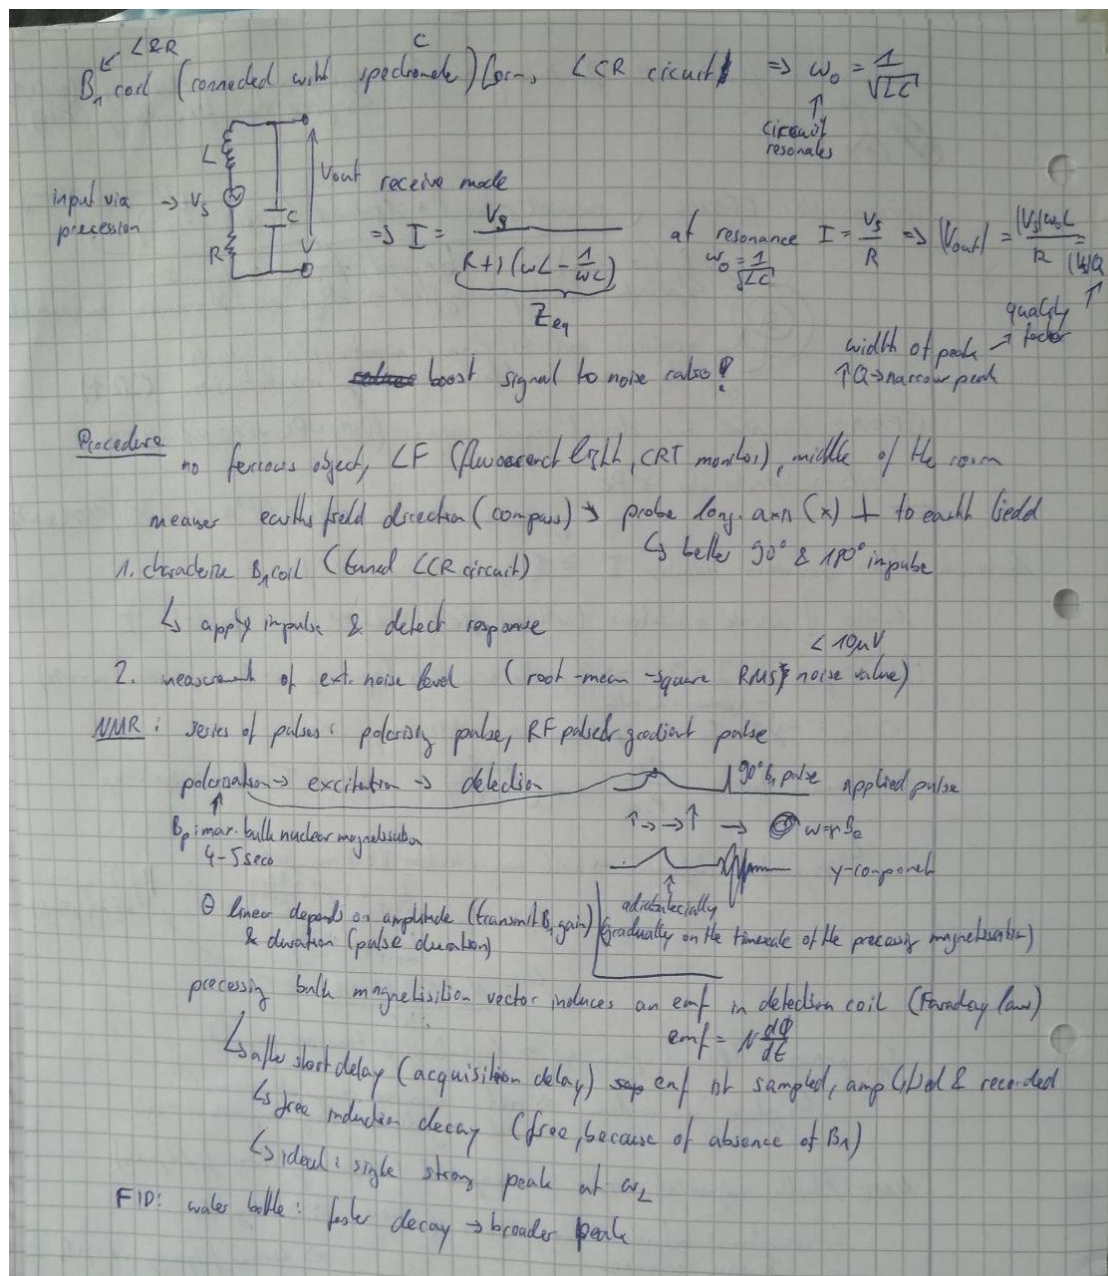 L&R
C
B₁ coil (connected with spectrometer) form LCR circuit => ω₀ = 1/√LC
circuit
resonates
L
input via -> Vs
precession
R
C
Vout receive mode
=> I = Vs / (R + j(ωL - 1/ωC))
Zeq
at resonance I = Vs/R => |Vout| = |Vs|ω₀L/R = |Vs|Q
ω₀ = 1/√LC
quality
factor
width of peak
↑Q -> narrow peak
boost signal to noise ratio!
Procedure
no ferrous object, LF (fluorescent light, CRT monitor), middle of the room
measure earths field direction (compass) -> probe long. axis (x) ⊥ to earth field
↳ better 90° & 180° impulse
1. characterize B₁ coil (tuned LCR circuit)
↳ apply impulse & detect response
< 10μV
2. measurement of ext. noise level (root-mean-square RMS noise value)
NMR: series of pulses: polarising pulse, RF pulse & gradient pulse
polarisation -> excitation -> detection
90° B₁ pulse applied pulse
Bp: max. bulk nuclear magnetisation
4-5 sec
ω=γBe
y-component
adiabatically
θ linear depends on amplitude (transmit B₁ gain)
& duration (pulse duration)
(gradually on the timescale of the precessing magnetisation)
precessing bulk magnetisition vector induces an emf in detection coil (Faraday law)
emf = N dΦ/dt
↳ after short delay (acquisition delay) emf is sampled, amplified & recorded
↳ free induction decay (free, because of absence of B₁)
↳ ideal: single strong peak at ω_L
FID: water bottle: faster decay -> broader peak